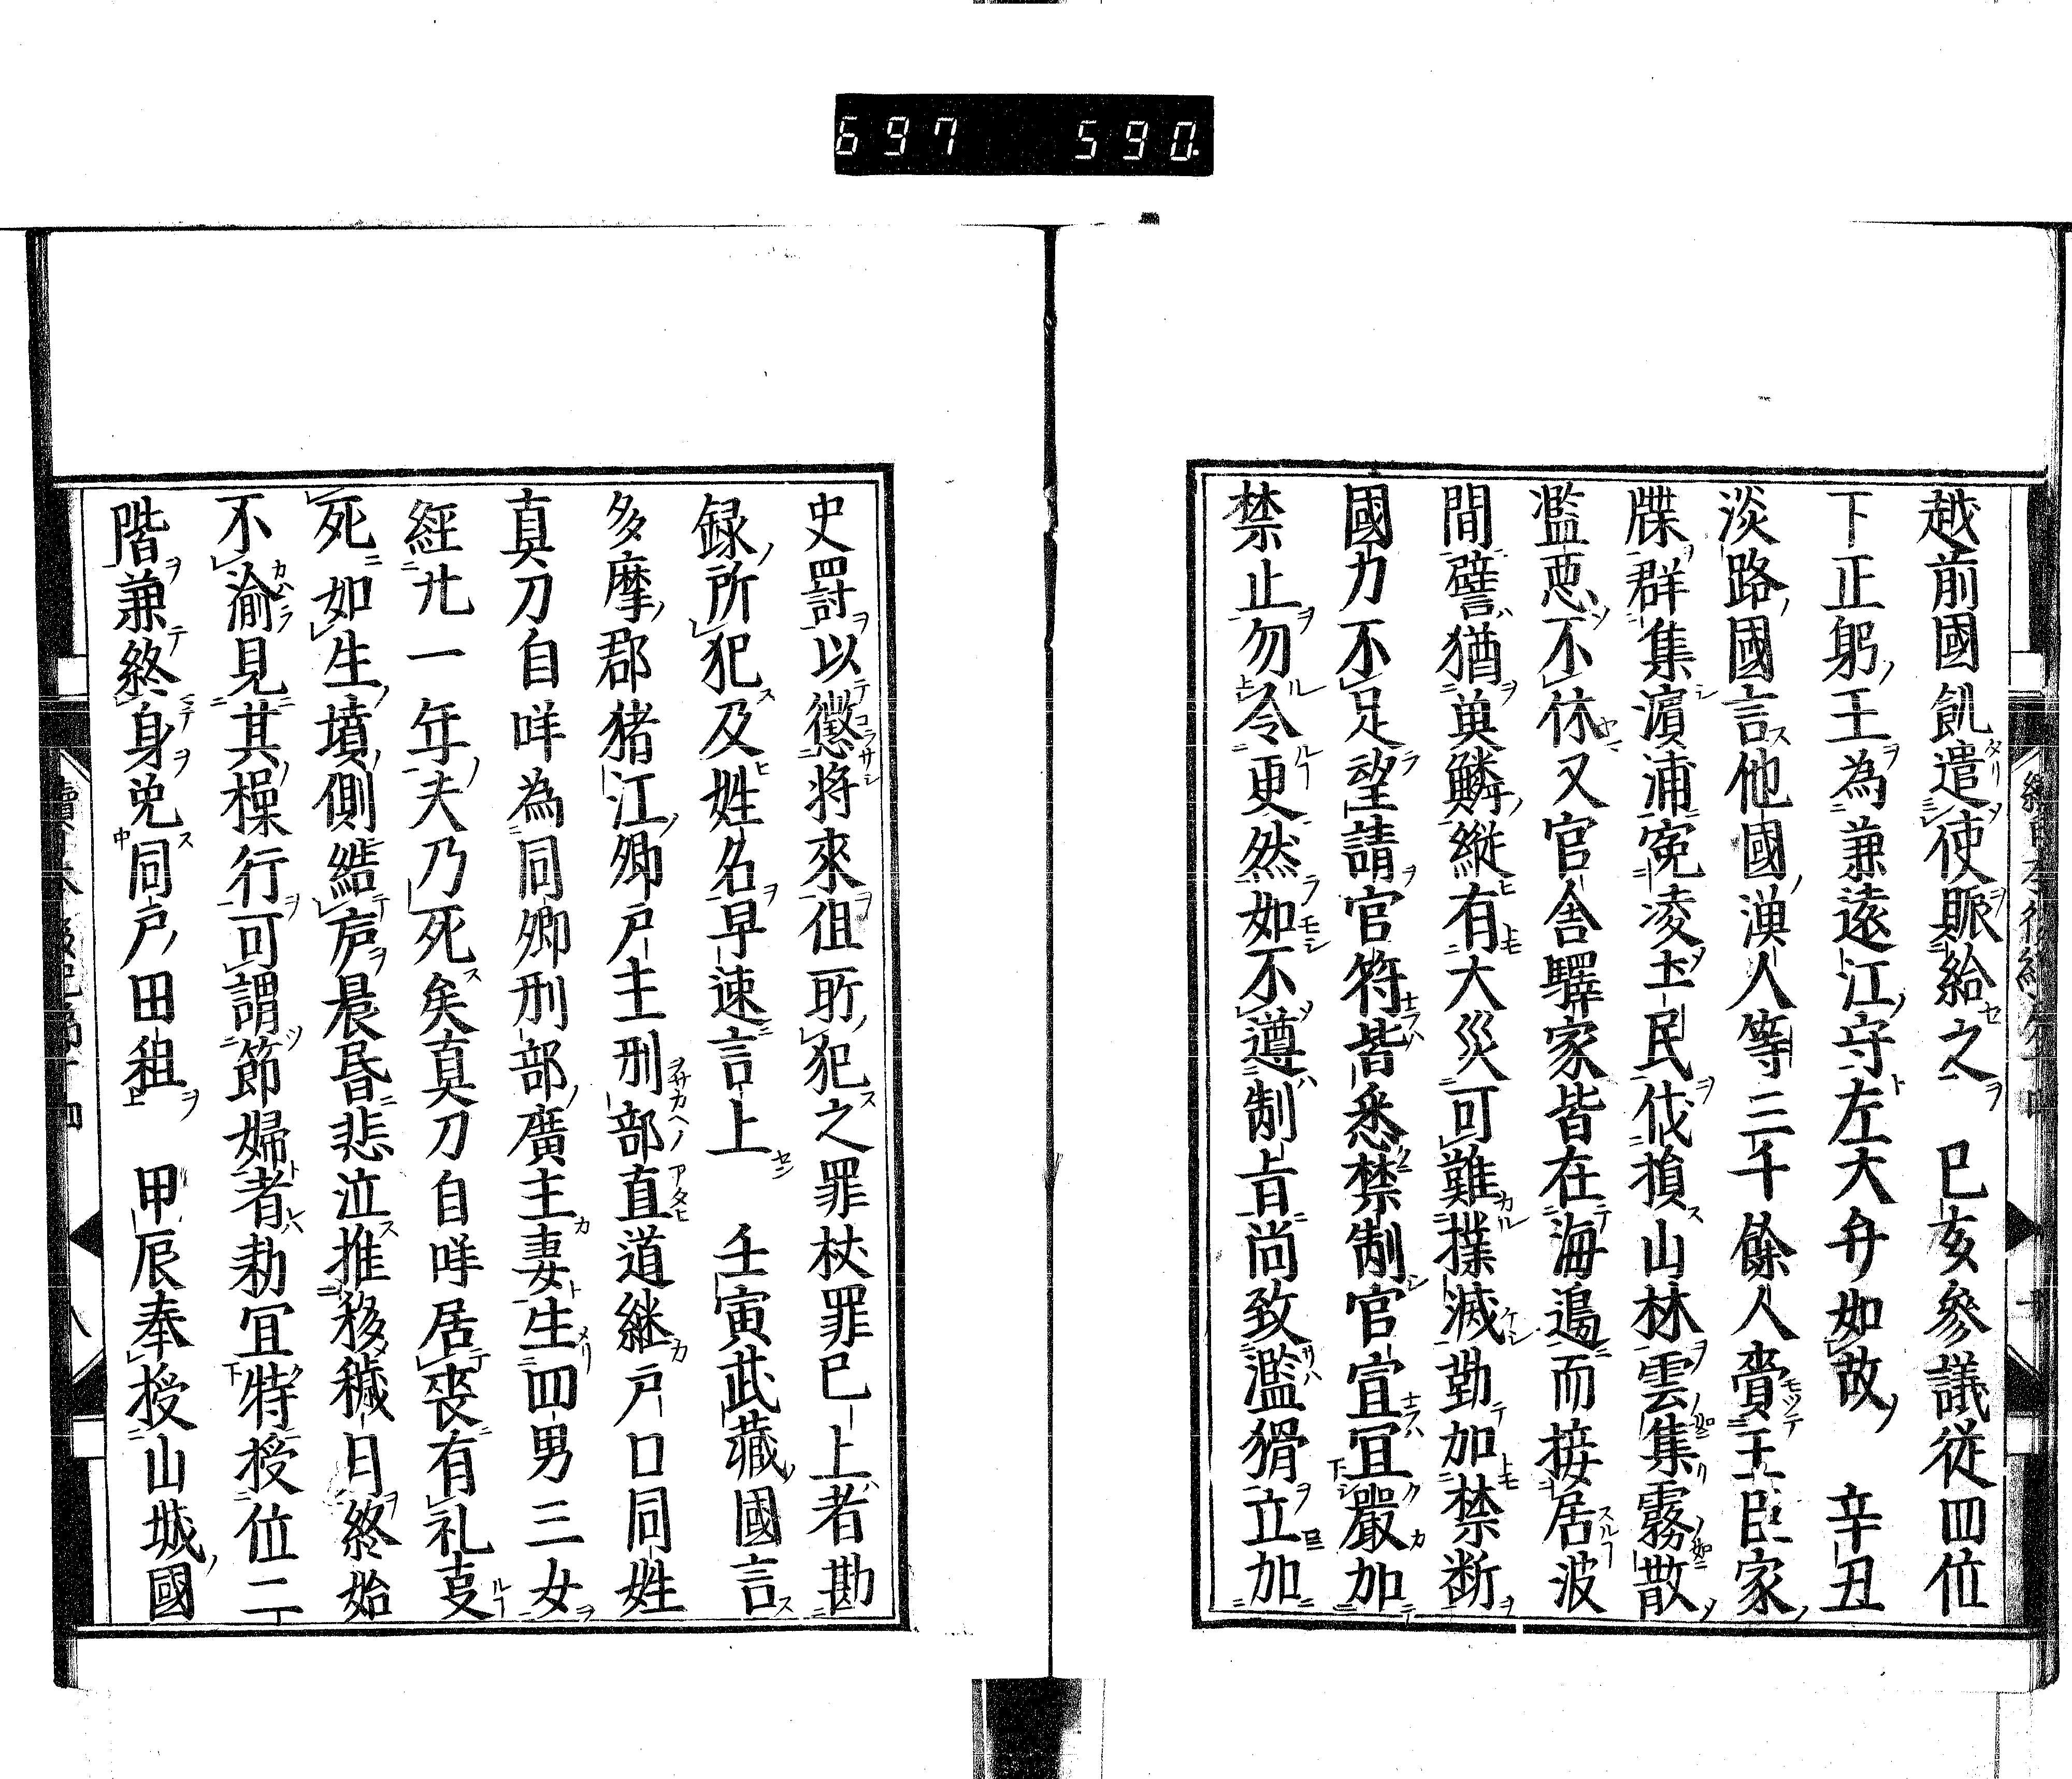 697 590.
越前國飢遣使賑給之 己亥參議従四位
下正躬王為兼遠江守左大弁如故 辛丑
淡路國言他國漁人等三千餘人賷王臣家
牒群集濵浦寃凌土民伐損山林雲集霧散
濫惡不休又官舎驛家皆在海邊而接居波
間譬猶萬鱗縦有大災可難撲滅勤加禁断
國力不足望請官符皆悉禁制官宜冝嚴加
禁止勿令更然如不遵制旨尚致濫猾立加
史罸以懲将來但所犯之罪杖罪已上者勘
録所犯及姓名早速言上 壬寅武藏國言
多摩郡猪江郷戸主刑部直道継戸口同姓
真刀自咩為同郷刑部廣主妻生四男三女
經廿一年夫乃死矣真刀自咩居喪有礼㕝
死如生墳側結廬晨昏悲泣推移穢日終始
不渝見其操行可謂節婦者勅冝特授位二
階兼終身免同戸田租 甲辰奉授山城國